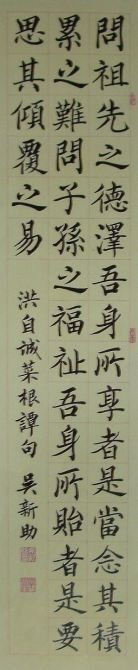 問祖先之德澤吾身所享者是當念其積
累之難問子孫之福祉吾身所貽者是要
思其傾覆之易
洪自誠菜根譚句 吳新助